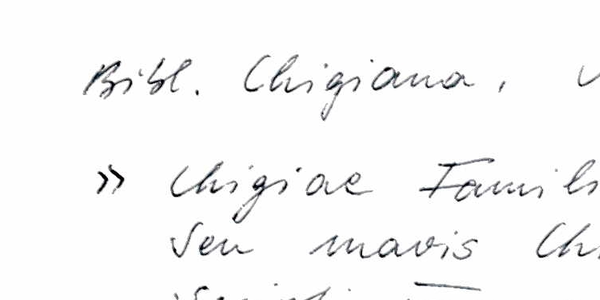 Bibl. Chigiana,
» Chigiae Famil
seu mavis Ch